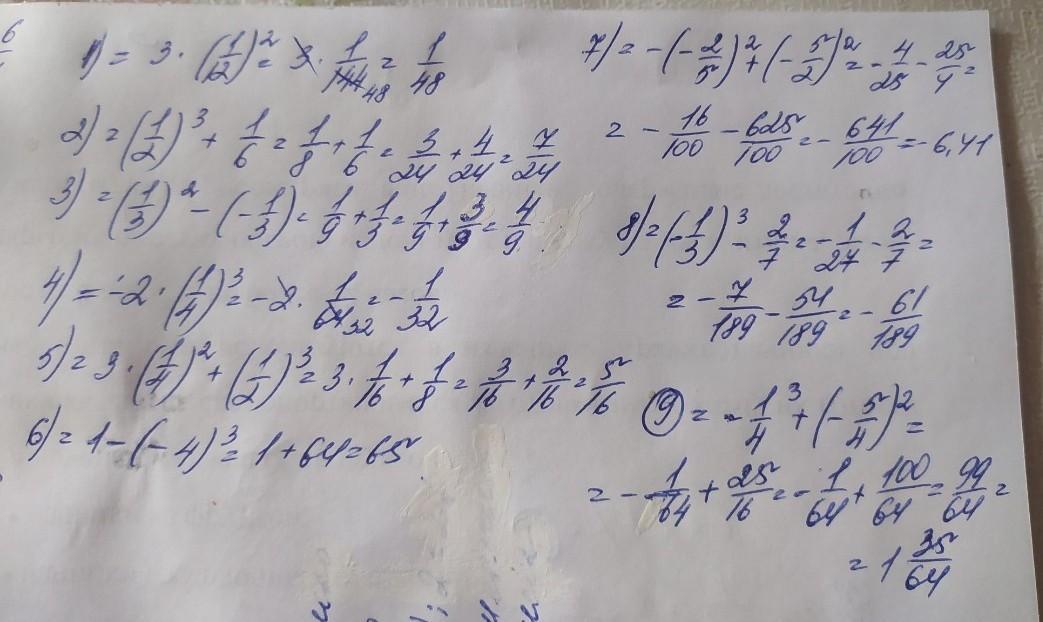 1) = 3 · (1/12)² = 3 · 1/144 48 = 1/48
2) = (1/2)³ + 1/6 = 1/8 + 1/6 = 3/24 + 4/24 = 7/24
3) = (1/3)² - (-1/3) = 1/9 + 1/3 = 1/9 + 3/9 = 4/9
4) = -2 · (1/4)³ = -2 · 1/64 32 = -1/32
5) = 3 · (1/4)² + (1/2)³ = 3 · 1/16 + 1/8 = 3/16 + 2/16 = 5/16
6) = 1 - (-4)³ = 1 + 64 = 65
7) = -(-2/5)² + (-5/2)² = -4/25 - 25/4 =
= -16/100 - 625/100 = -641/100 = -6,41
8) = (-1/3)³ - 2/7 = -1/27 - 2/7 =
= -7/189 - 54/189 = -61/189
9 = -1/4³ + (-5/4)² =
= -1/64 + 25/16 = -1/64 + 100/64 = 99/64 =
= 1 35/64